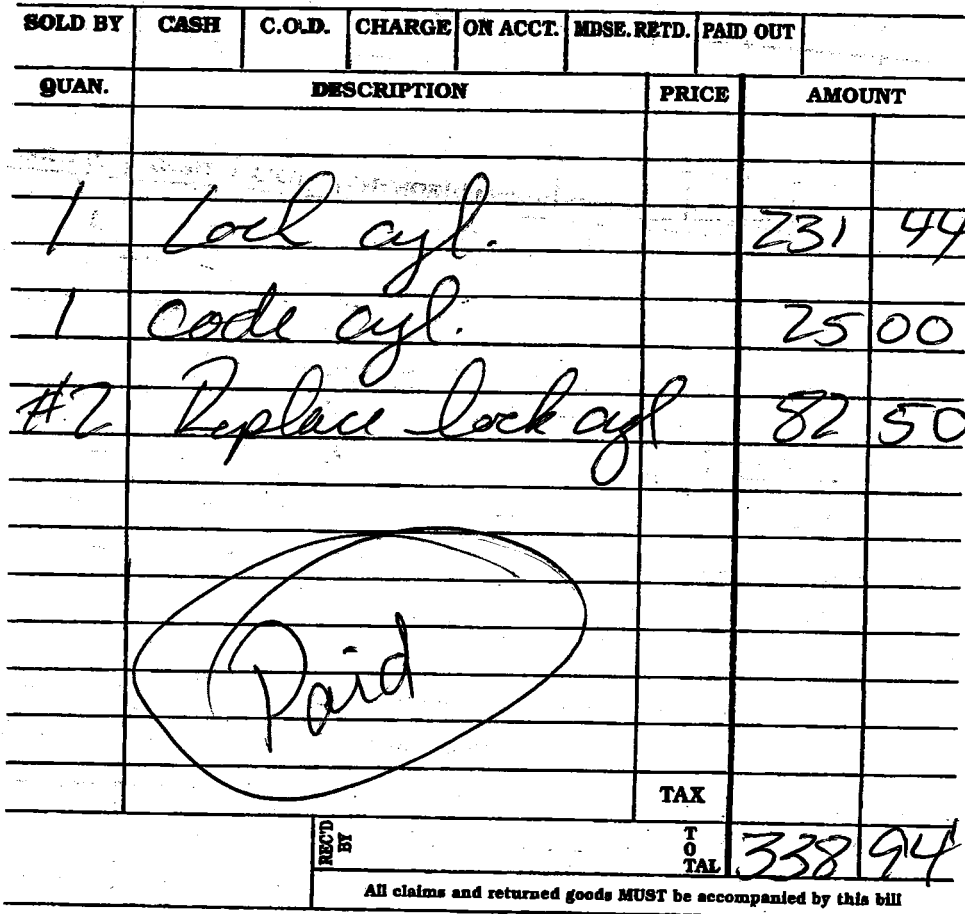 SOLD BY CASH C.O.D. CHARGE ON ACCT. MDSE. RETD. PAID OUT
QUAN. DESCRIPTION PRICE AMOUNT
1 Lock cyl. 231 44
1 code cyl. 25 00
#2 Replace lock cyl 82 50
Paid
TAX
REC'D BY TOTAL 338 94
All claims and returned goods MUST be accompanied by this bill